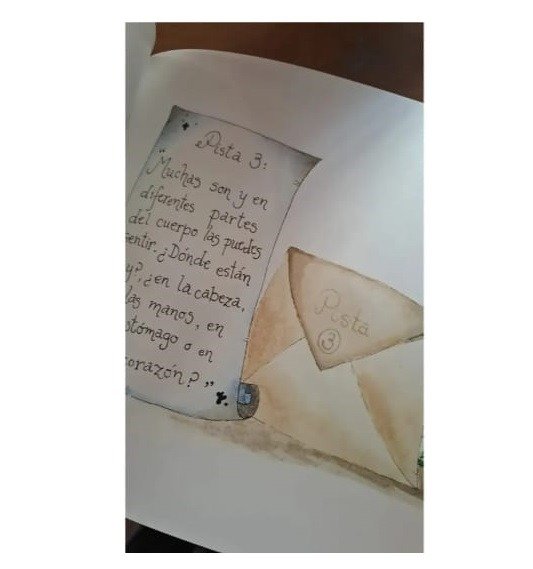 Pista 3:
"Muchas son y en
diferentes partes
del cuerpo las puedes
sentir. ¿Dónde están
y?, ¿en la cabeza,
las manos, en
stómago o en
corazón?"
Pista
3